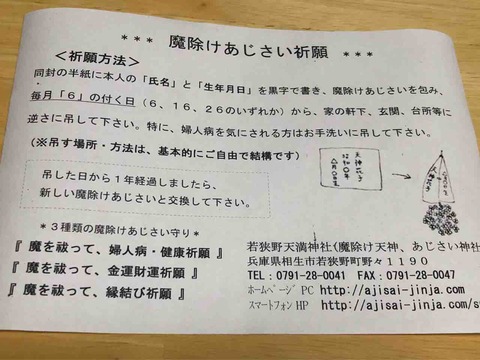 *** 魔除けあじさい祈願 ***
＜祈願方法＞
同封の半紙に本人の「氏名」と「生年月日」を黒字で書き、魔除けあじさいを包み、
毎月「６」の付く日（６、１６、２６のいずれか）から、家の軒下、玄関、台所等に
逆さに吊して下さい。特に、婦人病を気にされる方はお手洗いに吊して下さい。
（※吊す場所・方法は、基本的にご自由で結構です）
吊した日から１年経過しましたら、
新しい魔除けあじさいと交換して下さい。
天神花子
昭和〇年
〇月〇〇日
天神花子
＊３種類の魔除けあじさい守り＊
『 魔を祓って、婦人病・健康祈願 』
『 魔を祓って、金運財運祈願 』
『 魔を祓って、縁結び祈願 』
若狭野天満神社（魔除け天神、あじさい神社
兵庫県相生市若狭野町野々１１９０
TEL：0791-28-0041 FAX：0791-28-0047
ホームページ PC http://ajisai-jinja.com/
スマートフォン HP http://ajisai-jinja.com/s